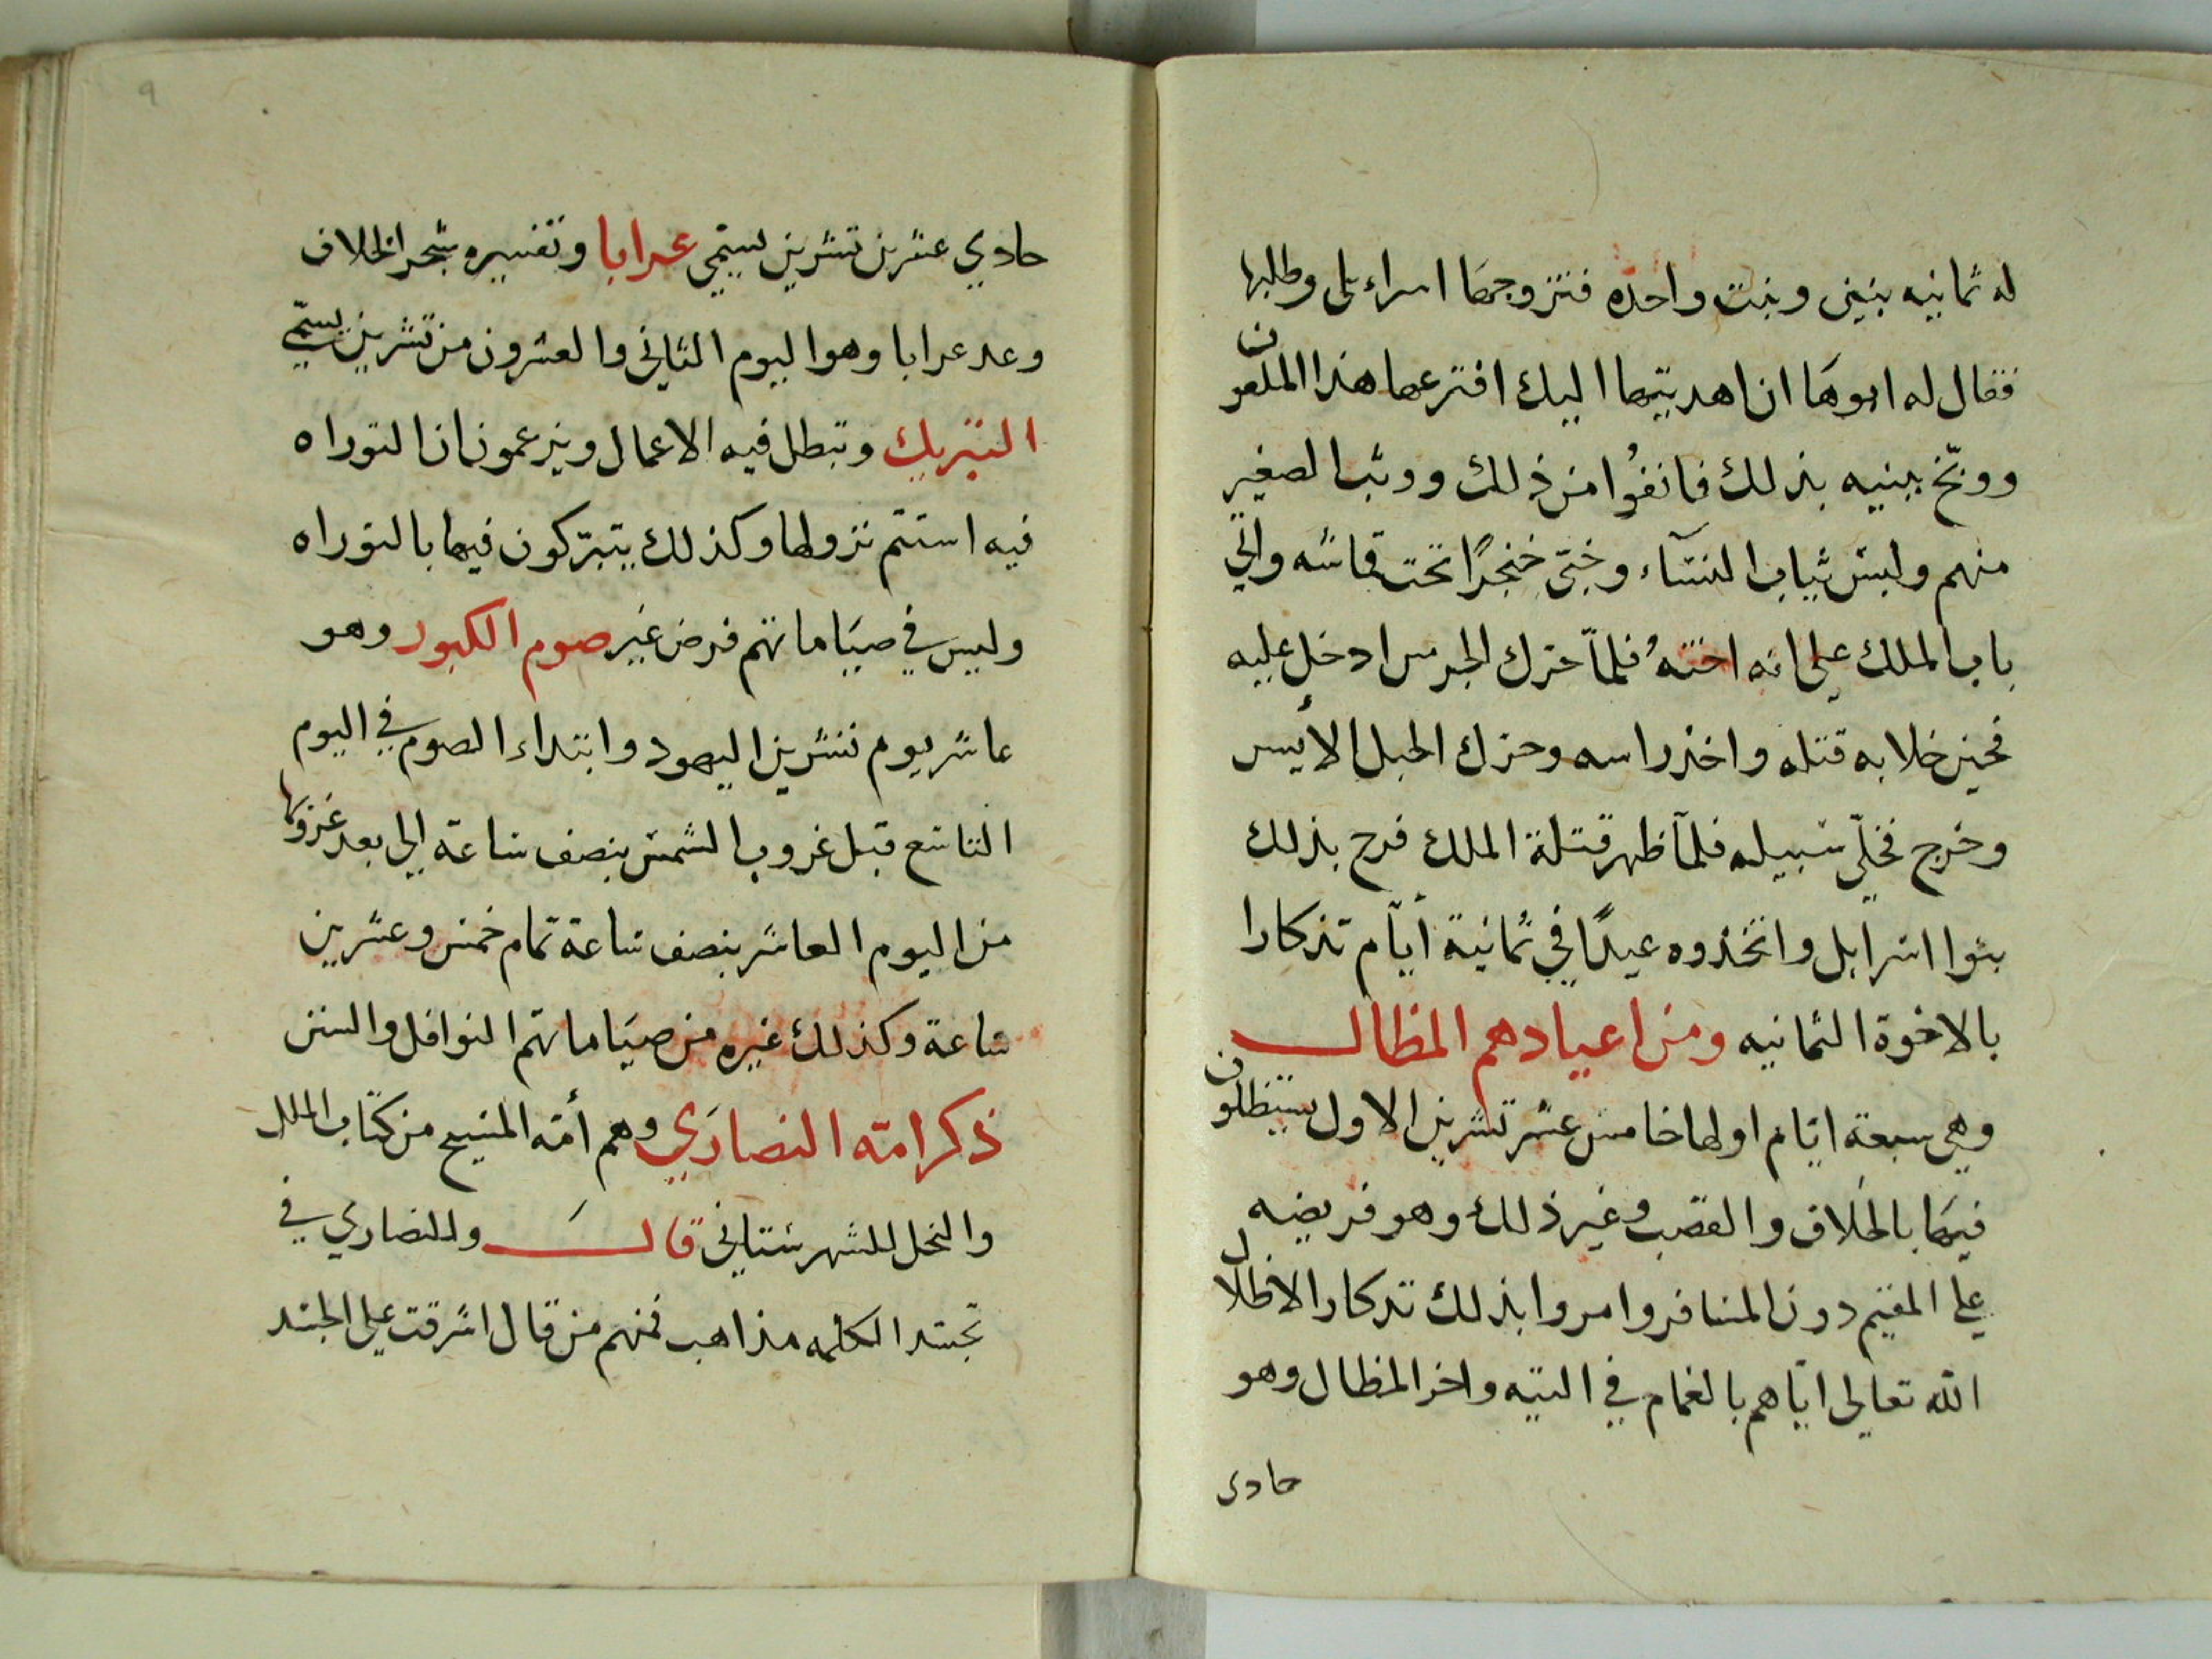 له ثمانيه بنين وبنت واحده فتزوجها اسراءيلى وطلبها
فقال له ابوها ان اهديتها اليك افترعها هذا الملعون
ووبّخ بنيه بذلك فانفوُا من ذلك ووثب الصغير
منهم ولبس ثياب النسآء وخبّى خنجرًا تحت قماشه واتي
باب الملك علي انه اخته فلمّا حرك الجرس ادخل عليه
فحين خلا به قتله واخذ راسه وحرك الحبل الأيسر
وخرج فخلّي سبيله فلمّا ظهر قتلة الملك فرح بذلك
بنوا اسرايل واتخذوه عيدًا في ثمانية أيّام تذكارا
بالاخوة الثمانيه ومن اعيادهم المظال
وهي سبعة ايّام اولها خامس عشر تشرين الاول يستظلون
فيها بالخلاف والقصب وغير ذلك وهو فريضه
علي المقيم دون المسافر وامروا بذلك تدكارا لاظلال
الله تعالي ايّاهم بالغمام في التيه واخر المظال وهو
حادى
٩
حادي عشرين تشرين يسمّي عرابا وتفسيره شجر الخلاف
وغد عرابا وهو اليوم الثاني والعشرون من تشرين يسمّي
التبريك وتبطل فيه الاعمال ويزعمون ان التوراه
فيه استتم نزولها وكذلك يتبرّكون فيها بالتوراه
وليس في صيَاماتهم فرض غير صوم الكبور وهو
عاشر يوم تشرين اليهود وابتداء الصوم في اليوم
التاسع قبل غروب الشمس بنصف ساعة الي بعد غروبها
من اليوم العاشر بنصف ساعة تمام خمس وعشرين
ساعة وكذلك غيره من صيَاماتهم النوافل والسنن
ذكر امّه النصارَي وهم أمّه المسيح من كتاب الملل
والنحل للشهرستاني قال وللنصاري في
تجسّد الكلمه مذاهب فمنهم من قال اشرقت علي الجسد